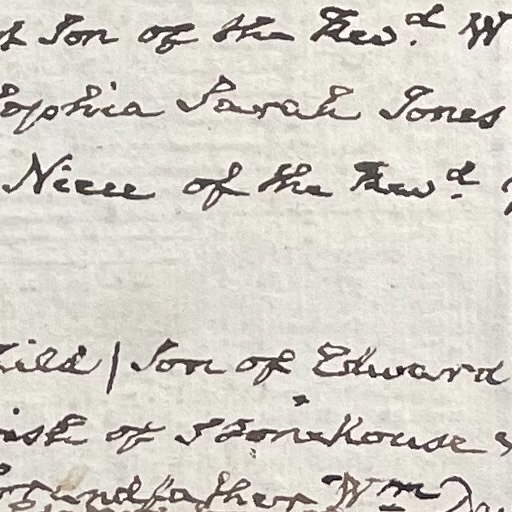 Son of the Revd. W
Sophia Sarah Jones
Niece of the Revd.
Son of Edward
of Stonehouse
Grandfather Wm